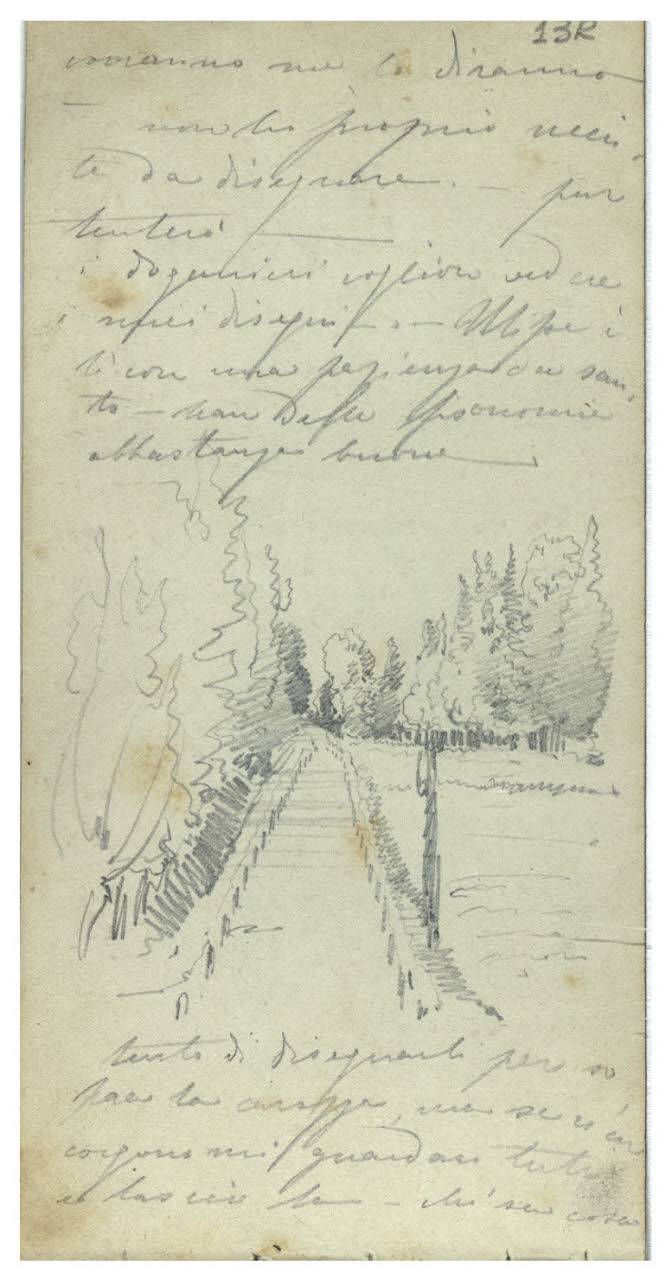 13R
vorranno me lo diranno
— non ho proprio nien-
te da disegnare. — pur
tenterò —
i doganieri voglion vedere
i miei disegni — . — Ulisse è
lì con una pazienza da san-
to — han delle fisonomie
abbastanza buone —
tento di disegnarli per so
pra la carozza, ma se n'ac
corgono mi guardan tutti
e lascio la — chi sa cosa